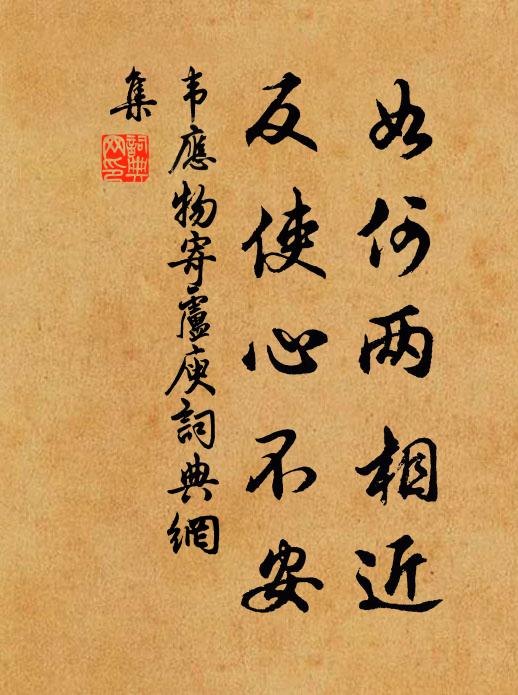 如何两相近
反使心不安
韦應物寄盧庾詞典網
集
詞典
网印